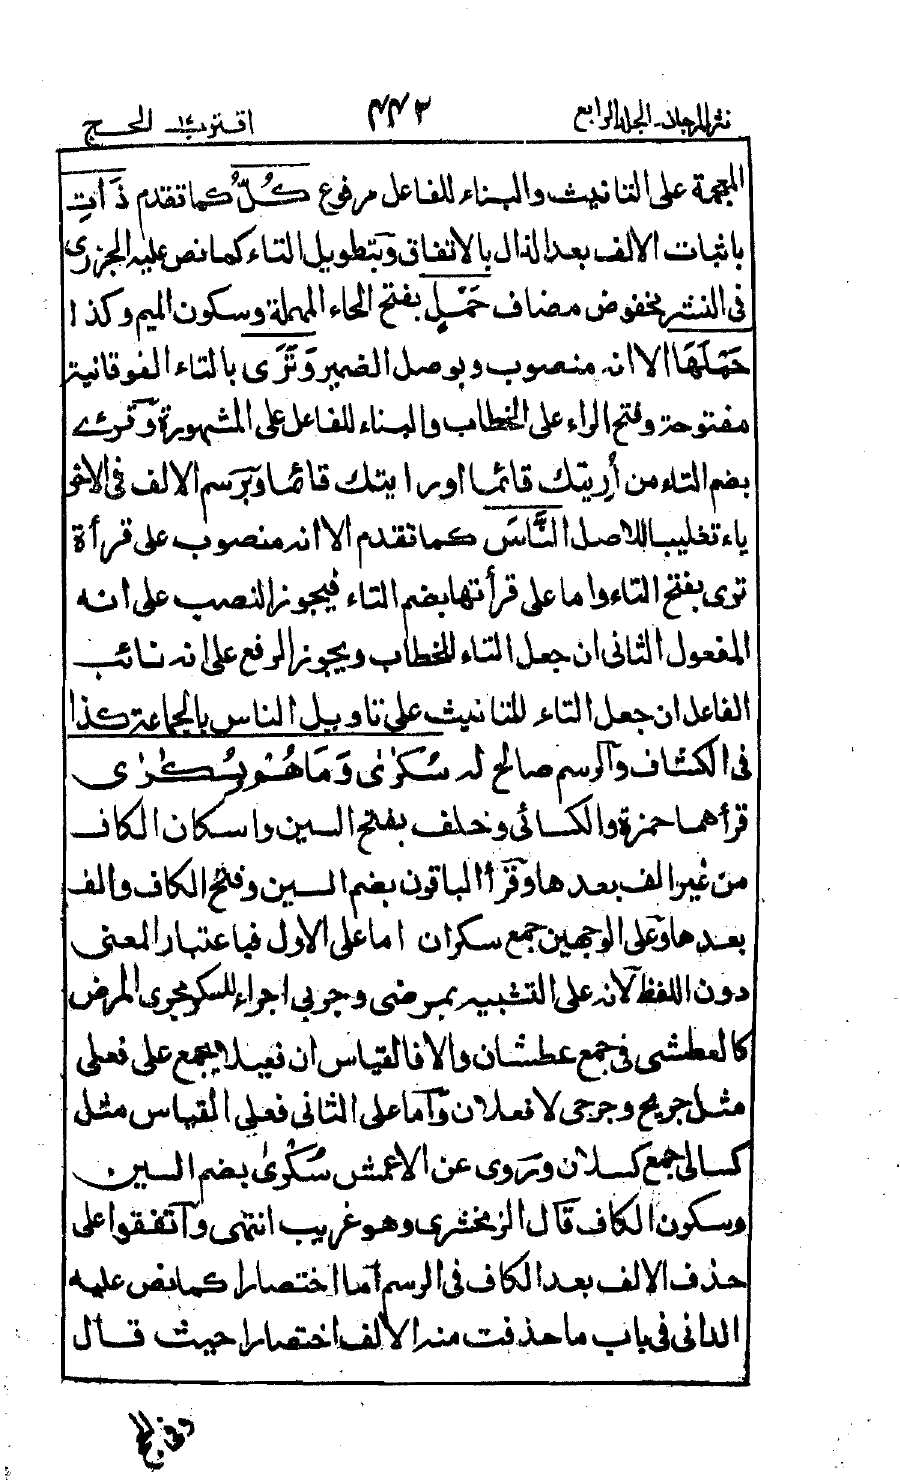 نثر المرجان۔ الجلد الرابع ٤٤٢ اقترب ١٤ الحج
المعجمة على التانيث والبناء للفاعل مرفوع كُلُّ كما تقدم ذَاتِ
باثبات الالف بعد الذال بالاتفاق وبتطويل التاء كما نص عليه الجزري
فى النشر مخفوض مضاف حَمْلٍ بفتح الحاء المهملة وسكون الميم وكذا
حَمْلَهَا الا انه منصوب وبوصل الضمير وَتَرَى بالتاء الفوقانية
مفتوحة وفتح الراء على الخطاب والبناء للفاعل على المشهورة وقرئ
بضم التاء من أُرِيتك قائما او رايتك قائما وبرسم الالف فى الاخر
ياء تغليبا للاصل النَّاسَ كما تقدم الا انه منصوب على قرأة
ترى بفتح التاء واما على قرأتها بضم التاء فيجوز النصب على انه
المفعول الثانى ان جعل التاء للخطاب ويجوز الرفع على انه نائب
الفاعل ان جعل التاء للتانيث على تاويل الناس بالجماعة كذا
فى الكشاف والرسم صالح له سُكَرٰى وَمَا هُمْ بِسُكَرٰى
قرأهما حمزة والكسائى وخلف بفتح السين واسكان الكاف
من غير الف بعدها وقرأ الباقون بضم السين وفتح الكاف والف
بعدها وعلى الوجهين جمع سكران اما على الاول فباعتبار المعنى
دون اللفظ لانه على التشبيه بمرضى وجربى اجراء للسكر مجرى المرض
كالعطشى فى جمع عطشان والا فالقياس ان فعيلا يجمع على فعلى
مثل جريح وجرحى لا فعلان واما على الثانى فعلى القياس مثل
كسالى جمع كسلان وروى عن الاعمش سُكْرىٰ بضم السين
وسكون الكاف قال الزمخشرى وهو غريب انتهى واتفقوا على
حذف الالف بعد الكاف فى الرسم اما اختصارا كما نص عليه
الدانى فى باب ما حذفت منه الالف اختصارا حيث قال
وفى الحج